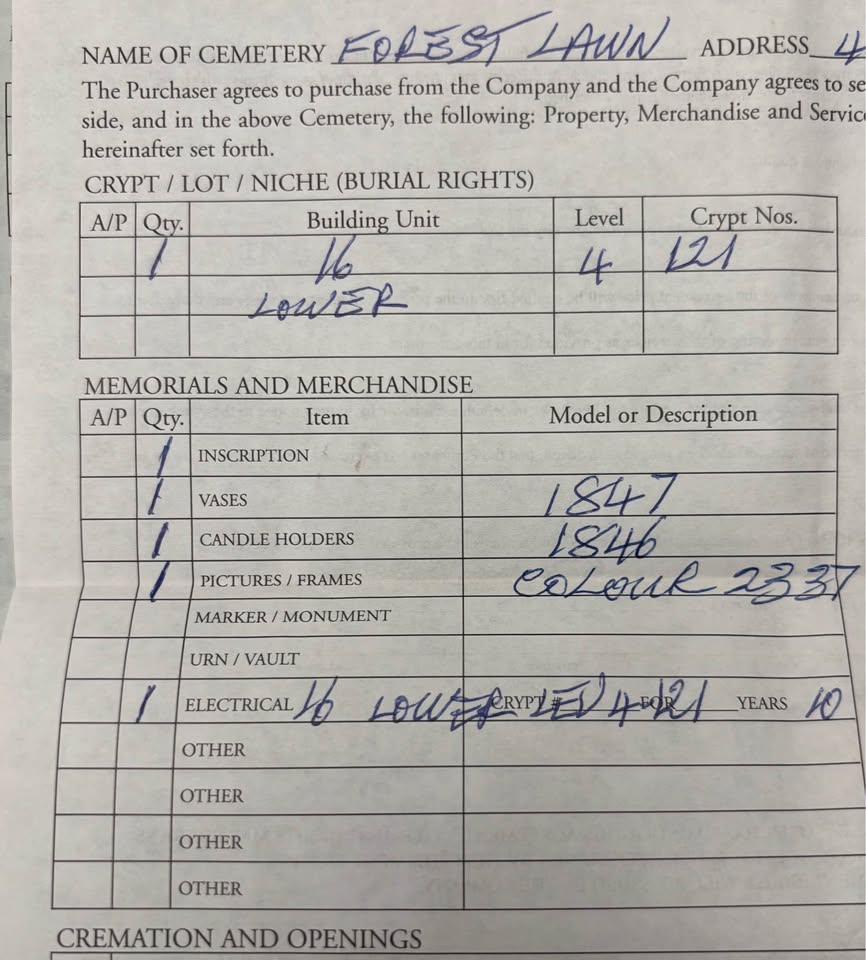 NAME OF CEMETERY FOREST LAWN ADDRESS 4
The Purchaser agrees to purchase from the Company and the Company agrees to se
side, and in the above Cemetery, the following: Property, Merchandise and Servic
hereinafter set forth.
CRYPT / LOT / NICHE (BURIAL RIGHTS)
A/P Qty. Building Unit Level Crypt Nos.
1 16 4 121
LOWER
MEMORIALS AND MERCHANDISE
A/P Qty. Item Model or Description
1 INSCRIPTION
1 VASES 1847
1 CANDLE HOLDERS 1846
1 PICTURES / FRAMES COLOUR 2337
MARKER / MONUMENT
URN / VAULT
1 ELECTRICAL 16 LOWER CRYPT # LEV 4 FOR 121 YEARS 10
OTHER
OTHER
OTHER
OTHER
CREMATION AND OPENINGS